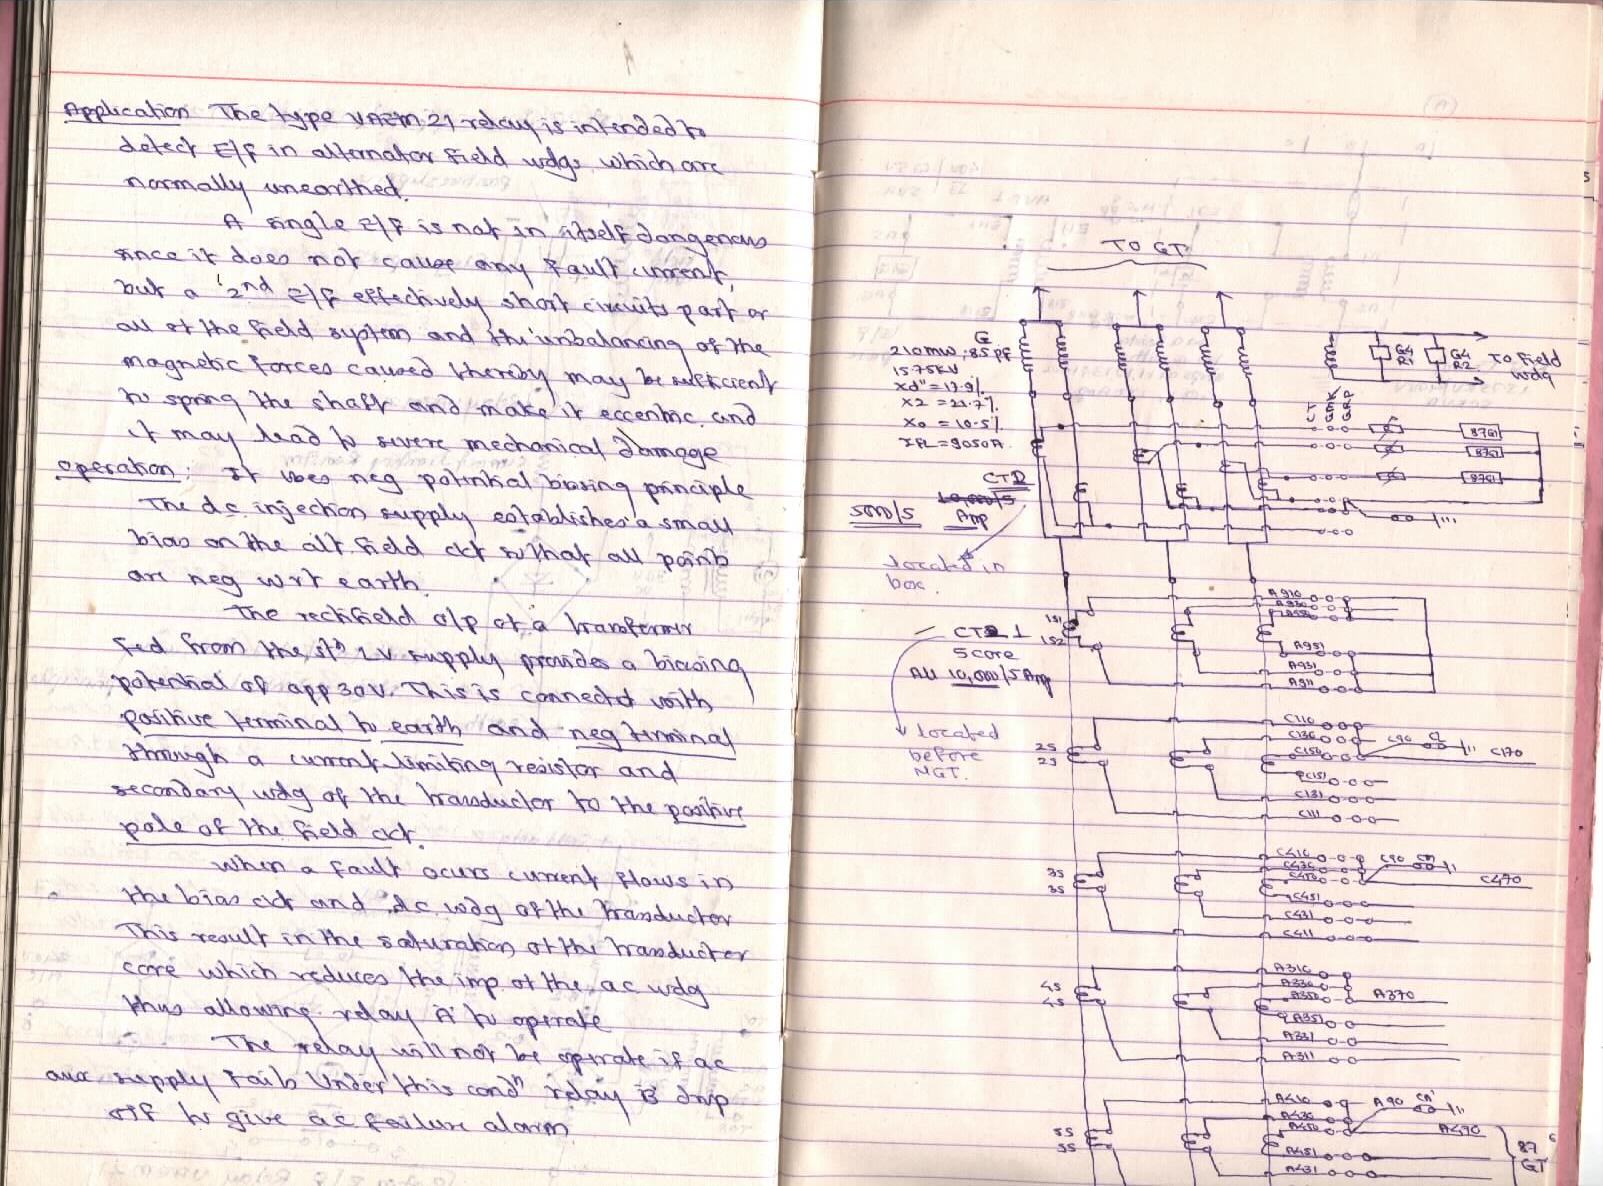 Application The type VAEM 21 relay is intended to
detect E/F in alternator field wdgs which are
normally unearthed.
A single E/F is not in itself dangerous
since it does not cause any fault current,
but a '2nd E/F effectively short circuits part or
all of the field system and the unbalancing of the
magnetic forces caused thereby may be sufficient
to spring the shaft and make it eccentric and
it may lead to severe mechanical damage
operation: It uses neg potential biasing principle
The d.c. injection supply establishes a small
bias on the alt field ckt so that all points
are neg wrt earth.
The rectified o/p of a transformer
fed from the stn LV supply provides a biasing
potential of app 30V. This is connected with
positive terminal to earth and neg terminal
through a current limiting resistor and
secondary wdg of the transductor to the positive
pole of the field ckt.
When a fault ocurs current flows in
the bias ckt and d.c. wdg of the transductor
This result in the saturation of the transductor
core which reduces the imp of the ac wdg
thus allowing relay 'A' to operate
The relay will not be operate if ac
aux supply fails Under this condn relay 'B' drop
off to give ac failure alarm.
TO GT
G
210MW .85 pf
15.75KV
Xd" = 17.9%
X2 = 21.7%
X0 = 10.5%
IFL = 9050A
G4 R1
G4 R2
TO Field
wdg
CT
GMK
GRP
87G1
87G1
87G1
CT2
10,000/5
5000/5 Amp
located in
box
CT 1
5 core
All 10,000/5 Amp
located
before
NGT.
1S1
1S2
A910
A930
A950
A951
A931
A911
2S
2S
C110
C130
C150
C90
C170
C151
C131
C111
3S
3S
C410
C430
C450
C90
C470
C451
C431
C411
4S
4S
A310
A330
A350
A370
A351
A331
A311
5S
5S
A410
A430
A450
A90
A490
A451
A431
87
GT